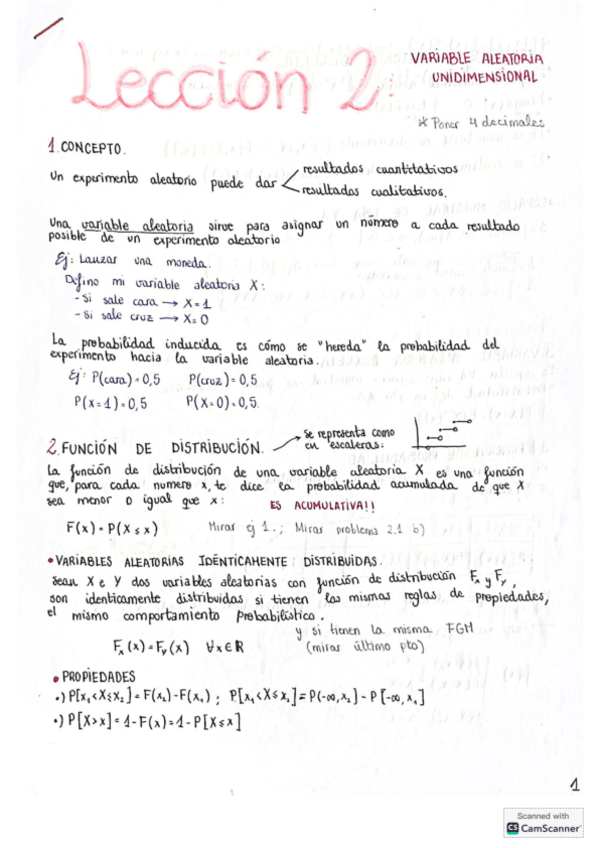 Lección 2:
VARIABLE ALEATORIA
UNIDIMENSIONAL
* Poner 4 decimales
1. CONCEPTO.
Un experimento aleatorio puede dar
resultados cuantitativos
resultados cualitativos.
Una variable aleatoria sirve para asignar un número a cada resultado
posible de un experimento aleatorio
Ej: Lanzar una moneda.
Defino mi variable aleatoria X:
- Si sale cara → X=1
- Si sale cruz → X=0
La probabilidad inducida es cómo se "hereda" la probabilidad del
experimento hacia la variable aleatoria.
Ej: P(cara)=0,5 P(cruz)=0,5
P(X=1)=0,5 P(X=0)=0,5.
2. FUNCIÓN DE DISTRIBUCIÓN.
→ Se representa como
en escaleras:
La función de distribución de una variable aleatoria X es una función
que, para cada numero x, te dice la probabilidad acumulada de que X
sea menor o igual que x:
ES ACUMULATIVA!!
F(x)=P(X≤x) Mirar ej 1.; Mirar problema 2.1 b)
• VARIABLES ALEATORIAS IDÉNTICAMENTE DISTRIBUIDAS.
Sean X e Y dos variables aleatorias con función de distribución Fx y Fy,
son identicamente distribuidas si tienen las mismas reglas de propiedades,
el mismo comportamiento probabilístico.
y si tienen la misma FGM
Fx(x)=Fy(x) ∀x∈R (mirar último pto)
• PROPIEDADES
•) P[x₁<X≤x₂]=F(x₂)-F(x₁) ; P[x₁<X≤x₂]=P(-∞,x₂]-P[-∞,x₁]
•) P[X>x]=1-F(x)=1-P[X≤x]
1
Scanned with
CS CamScanner